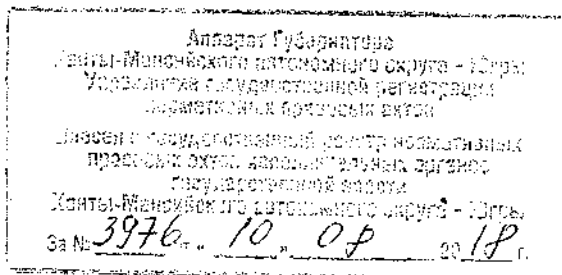 Аппарат Губернатора
Ханты-Мансийского автономного округа - Югры
Управление государственной регистрации
нормативных правовых актов
Внесен в государственный реестр нормативных
правовых актов исполнительных органов
государственной власти
Ханты-Мансийского автономного округа - Югры
За № 3976 от « 10 » 08 20 18 г.